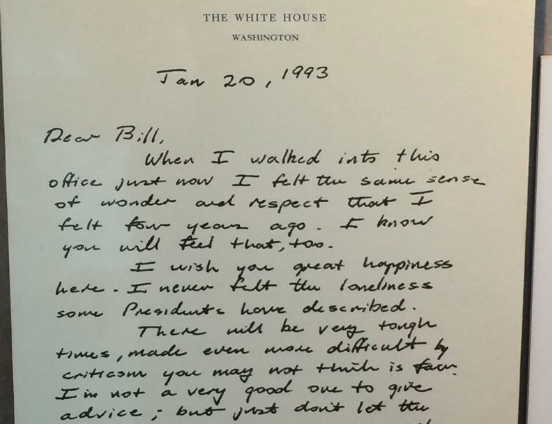 THE WHITE HOUSE
WASHINGTON
Jan 20, 1993
Dear Bill,
When I walked into this
office just now I felt the same sense
of wonder and respect that I
felt four years ago. I know
you will feel that, too.
I wish you great happiness
here. I never felt the loneliness
some Presidents have described.
There will be very tough
times, made even more difficult by
criticism you may not think is fair.
I'm not a very good one to give
advice; but just don't let the